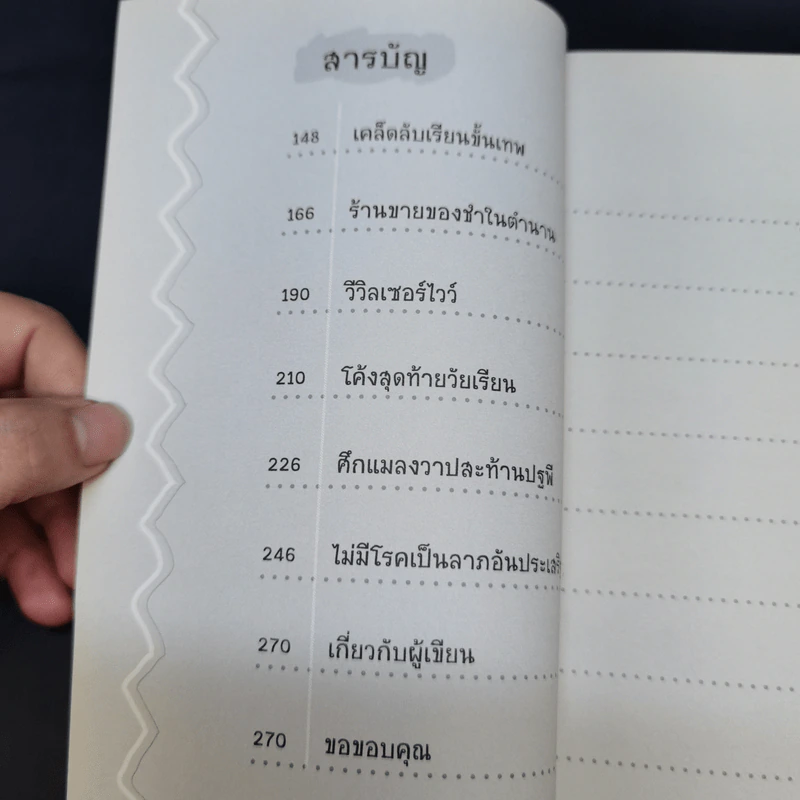 สารบัญ
148 เคล็ดลับเรียนขั้นเทพ
166 ร้านขายของชำในตำนาน
190 วีวิลเซอร์ไวว์
210 โค้งสุดท้ายวัยเรียน
226 ศึกแมลงวาปสะท้านปฐพี
246 ไม่มีโรคเป็นลาภอันประเสริ
270 เกี่ยวกับผู้เขียน
270 ขอขอบคุณ